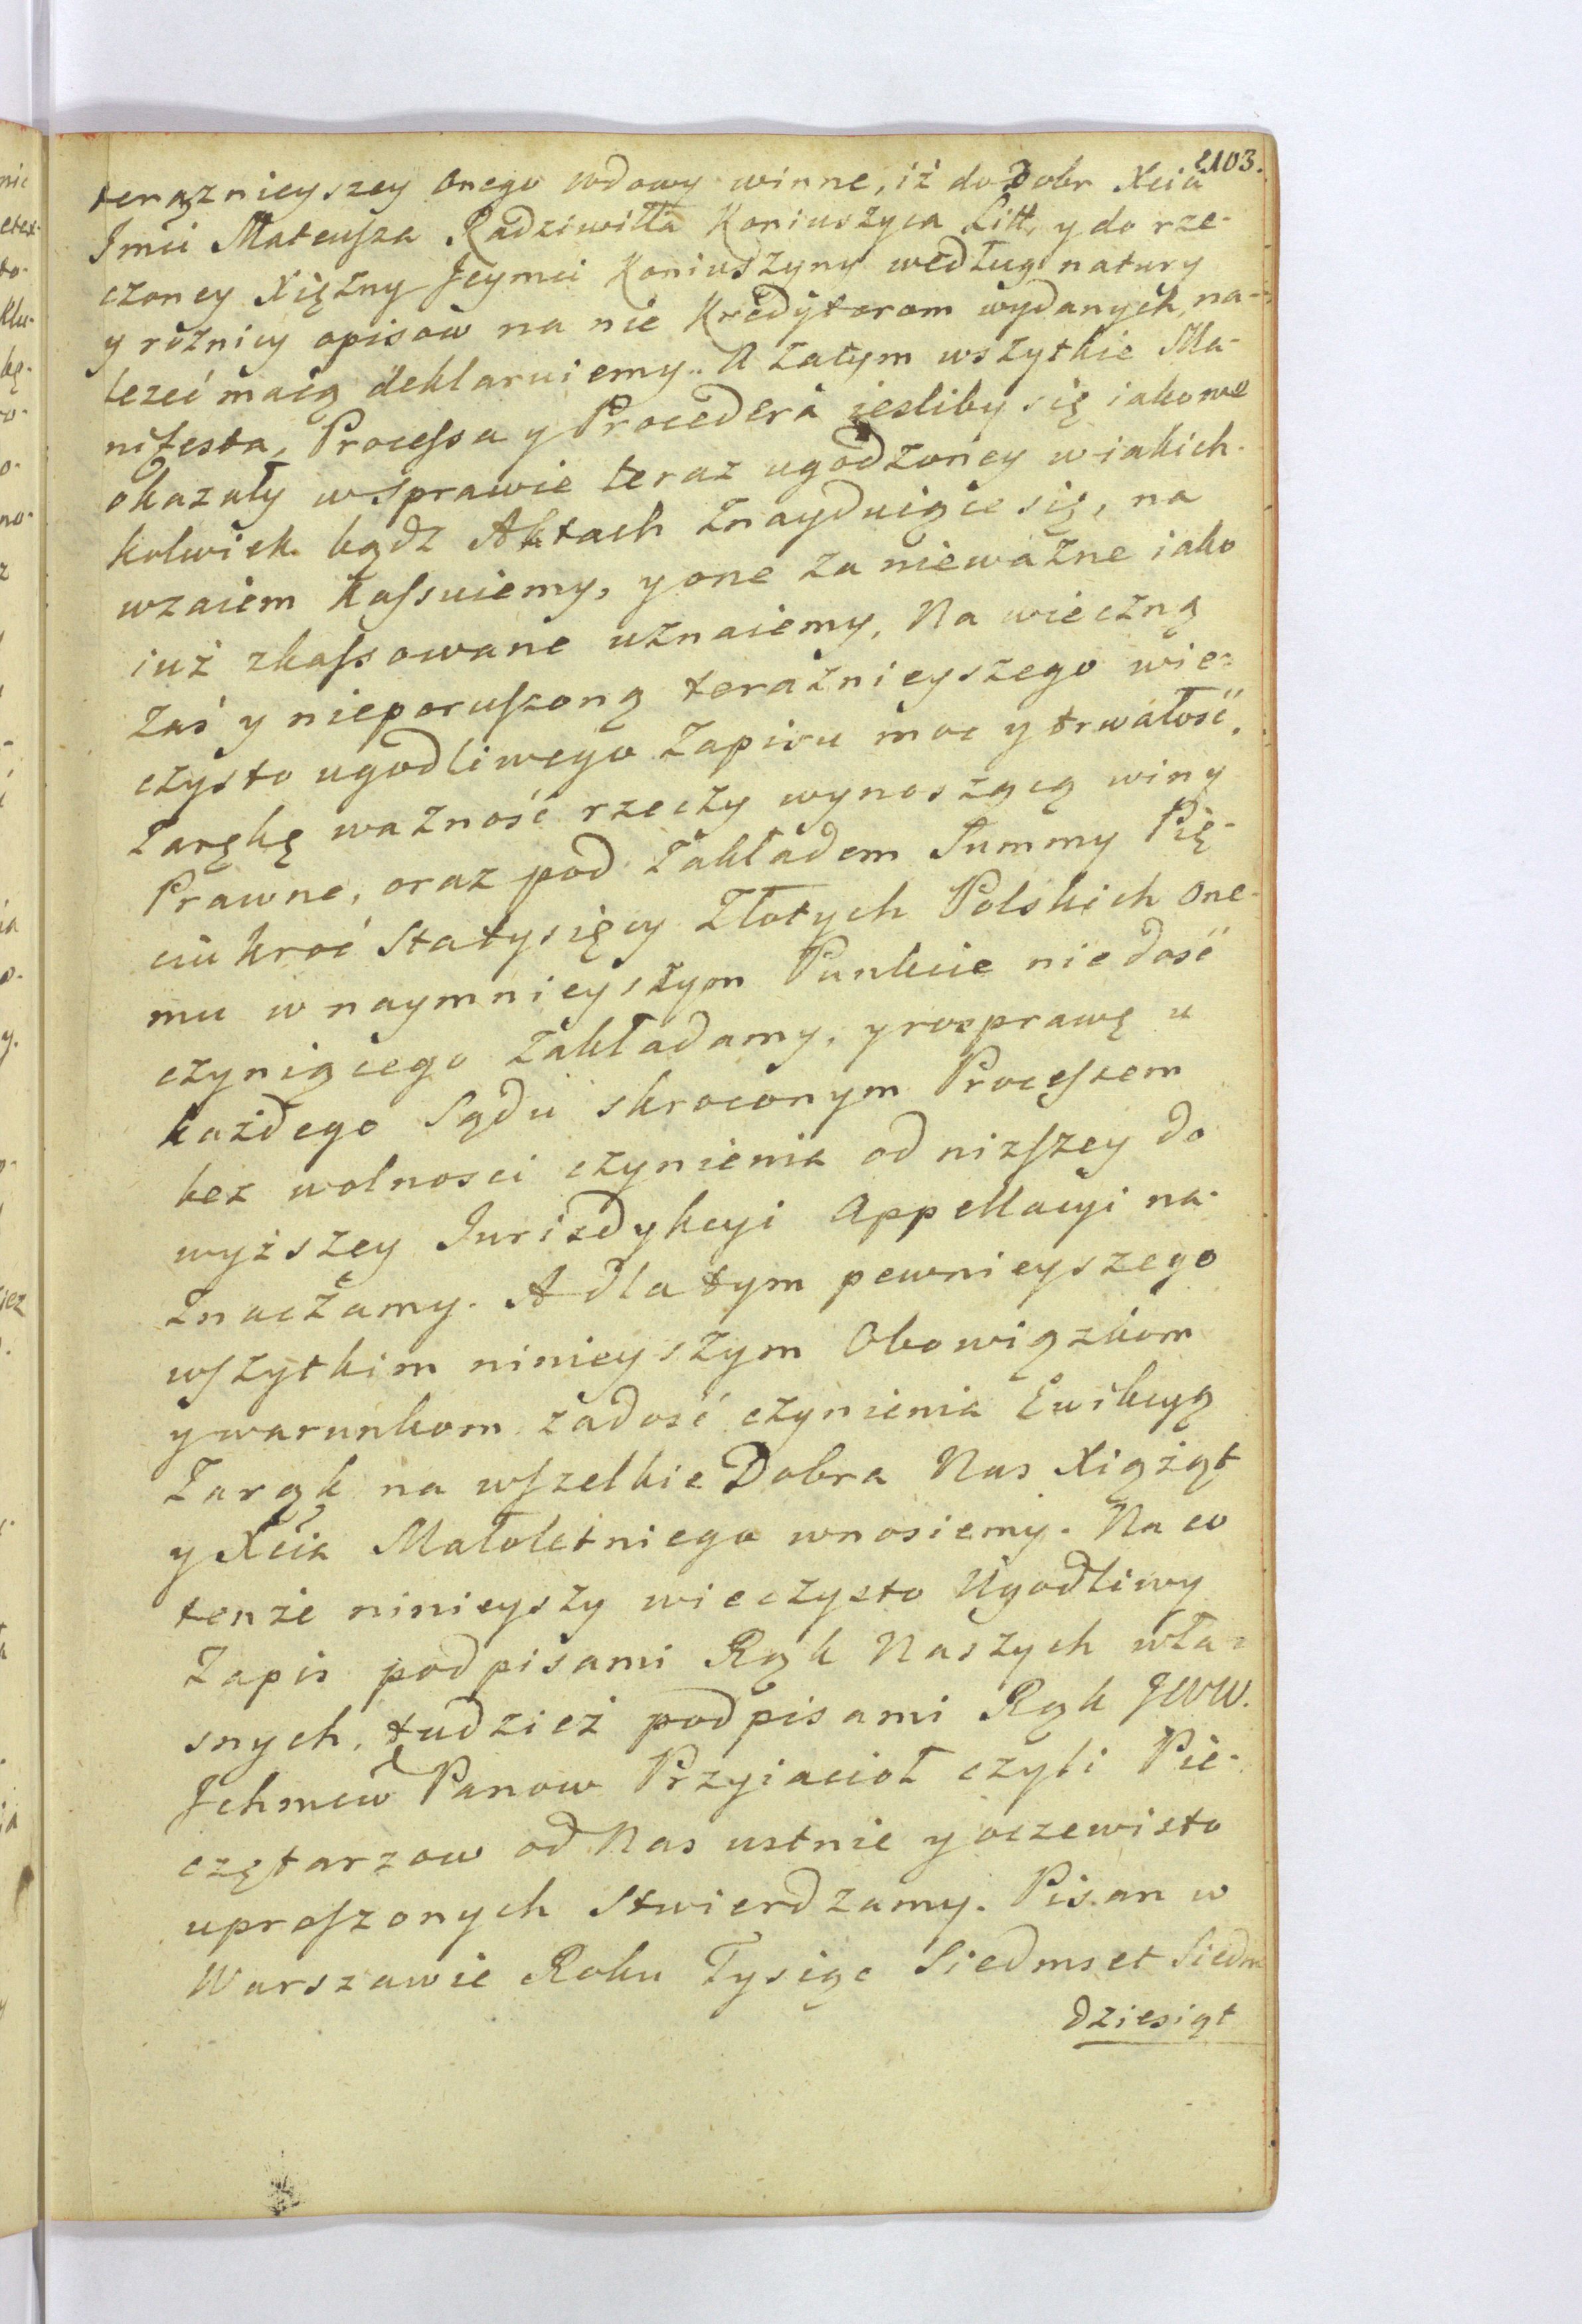 103.
teraznieyszey onego wdowy winne, iż do Dobr Xcia
Jmci Mateusza Radziwiłła Koniuszyca Litt. y do rze-
czoney Xiężny Jeymci Koniuszyny według natury
y rożnicy opisow na nie Kredytorom wydanych, na-
leżeć maią deklaruiemy. A zatym wszytkie Ma-
nifesta, Processa y Procedera iesliby się iakowe
okazały w sprawie teraz ugodzoney w iakich-
kolwiek bądz Aktach znayduiące się, na
wzaiem kassuiemy, y one za nieważne iako
iuż zkassowane uznaiemy, Na wieczną
zaś y nieporuszoną teraznieyszego wie-
czysto ugodliwego Zapisu moc y trwałość.
Zarękę ważność rzeczy wynoszącą winy
Prawne, oraz pod Zakładem Summy Pię-
ciu kroć Statysięcy Złotych Polskich one-
mu w naymnieyszym Punkcie niedość
czyniącego zakładamy, y rosprawę u
każdego Sądu skroconym Processem
bez wolnosci czynienia od nizszey do
wyższey Jurisdykcyi Appellacyi na-
znaczamy. A dla tym pewnieyszego
wszytkim ninieyszym Obowiązkom
y warunkom zadość czynienia Ewikcyą
Zarąk na wszelkie Dobra Nas Xiążąt
y Xcia Małoletniego wnosiemy. Na co
tenże ninieyszy wieczysto Ugodliwy
Zapis podpisami Rąk Naszych wła-
snych, tudzież podpisami Rąk JWW.
Jchmcw Panow Przyiacioł czyli Pie-
czętarzow od Nas ustnie y oczewisto
uproszonych stwierdzamy. Pisan w
Warszawie Roku Tysiąc Siedmset Siedm
dziesiąt